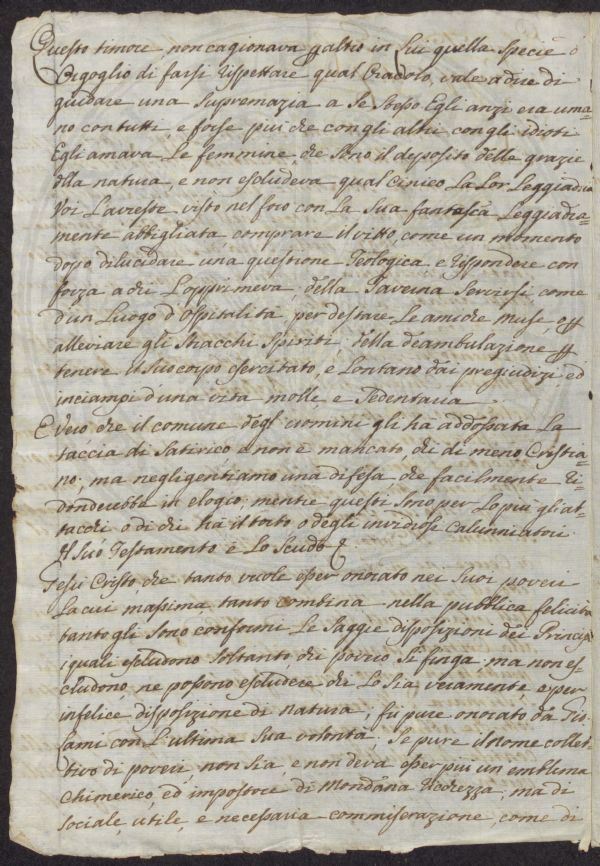 Questo timore non cagionava p altro in Lui quella specie d
Orgoglio di farsi rispettare qual Oracolo, vale a dire di
guidare una supremazia a se stesso Egli anzi era uma=
no con tutti, e forse più che con gli altri con gli idioti
Egli amava le femmine, che sono il deposito delle grazie
dlla natura, e non escludeva qual Cinico la lor leggiadria
Voi l'avreste visto nel foro con la sua fantesca leggiadra=
mente attigliata comprare il vitto, come un momento
dopo dilucidare una questione Teologica e rispondere con
forza a chi l'opprimeva, della Taverna servirsi come
d'un Luogo d'Ospitalità, per destare le amiche muse, o p
alleviare gli stracchi spiriti, della deambulazione p
tenere il suo corpo esercitato, e lontano dai pregiudizi ed
inciampi d'una vita molle, e sedentaria
È vero che il comune degl' uomini gli ha addossata la
taccia di Satirico e non è mancato, chi di meno Cristia=
no; ma negligentiamo una difesa che facilmente ri=
donderebbe in elogio, mentre questi sono per lo più gli at=
tacchi o di chi ha il torto o degli invidiosi calunniatori.
Il suo Testamento è lo scudo
Gesù Cristo, che tanto vuole esser onorato nei suoi poveri
La cui massima tanto combina nella pubblica felicità
tanto gli sono conformi le saggie disposizioni dei Principi
i quali escludono soltanto chi povero si finga ma non es=
cludono, ne possono escludere chi lo sia veramente, e per
infelice disposizione di natura; fu pure onorato da Gio
lami con l'ultima sua volontà, se pure il nome collet=
tivo di poveri non sia, e non deva esser più un emblema
chimerico, ed impostore di Mondana ; ma di
sociale, utile, e necessaria commiserazione, come di